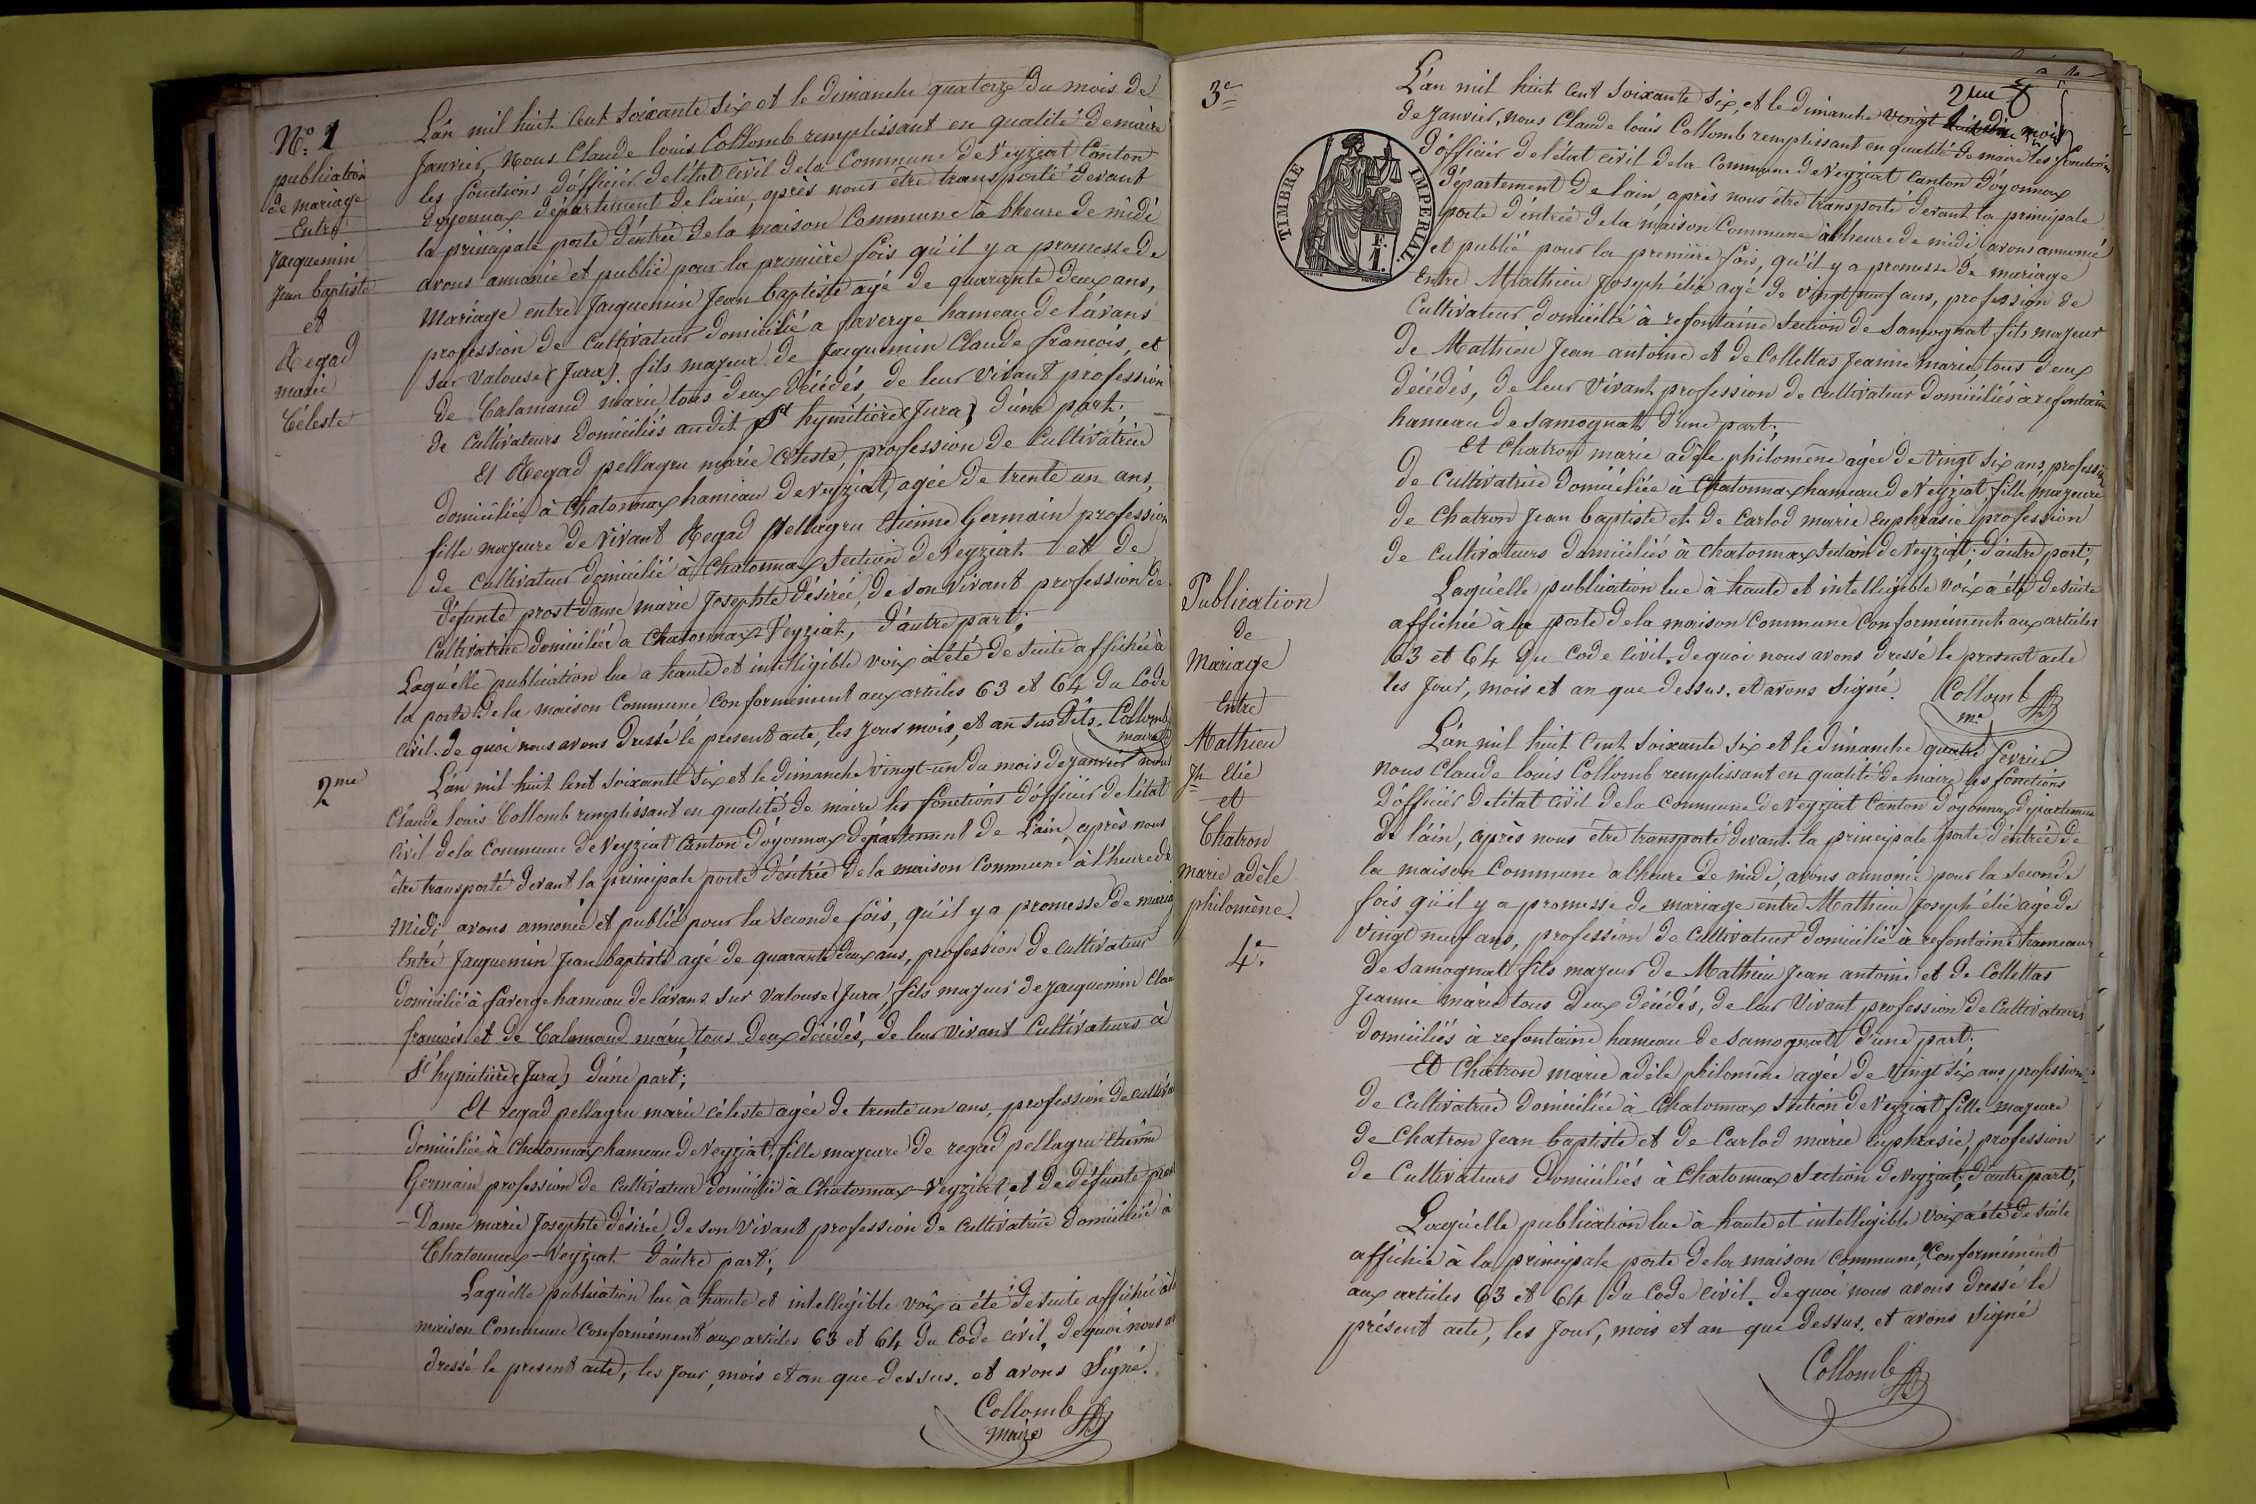 N° 1
publication
de mariage
Entre
Jacquemin
Jean baptiste
et
Regad
marie
Céleste
L'an mil huit Cent soixante six et le dimanche quatorze du mois de
Janvier, Nous Claude louis Collomb remplissant en qualité de maire
les fonctions d'officier de l'état civil de la Commune de Veyziat Canton
d'oyonnax département de l'ain, après nous être transporté devant
la principale porte d'entrée de la maison Commune à l'heure de midi
avons annoncé et publié pour la première fois qu'il y a promesse de
Mariage entre Jacquemin Jean baptiste agé de quarante deux ans,
profession de Cultivateur domicilié a faverge hameau de lavans
sur Valouse (Jura) fils majeur de Jacquemin Claude françois, et
de Calamand marie tous deux décédés, de leur vivant profession
de Cultivateurs domiciliés au dit St hymitière (Jura) d'une part;
Et Regad pellagru marie Céleste, profession de Cultivatrice
domiciliée à Chatonnax hameau de veyziat, agée de trente un ans,
fille majeure de vivant Regad Pellagru Etienne Germain profession
de Cultivateur domicilié à Chatonnax Section de Veyziat et de
défunte prost-Dame marie Josephte désirée, de son vivant profession de
Cultivatrice domiciliée a Chatonnax-Veyziat, d'autre part;
Laquelle publication lue a haute et intelligible voix à été de suite affichée à
la porte de la maison Commune Conformément aux articles 63 et 64 du Code
civil. de quoi nous avons dressé le present acte, les Jour mois, et an sus dits. Collomb
maire
2me
L'an mil huit Cent soixante six et le dimanche vingt-un du mois de janvier nous
Claude louis Collomb remplissant en qualité de maire les fonctions d'officier de l'état
civil de la Commune de Veyziat Canton d'oyonnax département de L'ain, après nous
être transporté devant la principale porte d'entrée de la maison Commune à l'heure de
Midi avons annoncé et publié pour la seconde fois, qu'il y a promesse de mariage
Entre Jacquemin Jean baptiste agé de quarante deux ans, profession de cultivateur
domicilié à faverge hameau de lavans sur Valouse (Jura) fils majeur de Jacquemin Clau
françois et de Calamand marie, tous deux décédés, de leur vivant Cultivateurs à
St hymitière (Jura) d'une part;
Et regad pellagru marie céleste agée de trente un ans, profession de cultiva
domiciliée à Chatonnax hameau de Veyziat, fille majeure de regad pellagru Etienne
Germain profession de Cultivateur domicilié à Chatonnax-Veyziat, et de défunte prost
- Dame marie Josephte désirée, de son vivant profession de Cultivatrice domiciliée à
Chatonnax-Veyziat d'autre part;
Laquelle publication lue à haute et intelligible voix a été de suite affichée à la
maison Commune Conformément aux articles 63 et 64 du Code civil. de quoi nous av
dressé le present acte, les Jour, mois et an que dessus. et avons signé.
Collomb
maire
3e
2
TIMBRE IMPERIAL.
Publication
de
Mariage
Entre
Mathieu
Jh Elie
et
Chatron
marie adèle
philomène.
L'an mil huit cent soixante six, et le dimanche vingt mois
de Janvier, nous Claude louis Collomb remplissant en qualité de maire les fonctions
d'officier de l'état civil de la Commune de Veyziat Canton d'oyonnax
département de l'ain, après nous être transporté devant la principale
porte d'entrée de la maison Commune à l'heure de midi avons annoncé
et publié pour la première fois, qu'il y a promesse de mariage
Entre Mathieu Joseph élie agé de vingt neuf ans, profession de
Cultivateur domicilié à refontaine Section de samognat fils majeur
de Mathieu Jean antoine et de Collettas Jeanne marie, tous deux
décédés, de leur vivant profession de cultivateur domiciliés à refontaine
hameau de Samognat d'une part;
Et Chatron marie adèle philomène agée de vingt six ans, profession
de Cultivatrice domiciliée à Chatonnax hameau de Veyziat, fille majeure
de Chatron Jean baptiste et de Carlod marie Euphrasie, profession
de Cultivateurs domiciliés à Chatonnax Section de Veyziat; d'autre part;
Laquelle publication lue à haute et intelligible voix a été de suite
affichée à la porte de la maison Commune Conformément aux articles
63 et 64 du Code civil. de quoi nous avons dressé le present acte
les Jour, mois et an que dessus. et avons signé. Collomb
me
4e
L'an mil huit Cent soixante six et le dimanche quatre fevrier
nous Claude louis Collomb remplissant en qualité de maire les fonctions
d'officier de l'état civil de la commune de Veyziat Canton d'oyonnax département
de l'ain, après nous être transporté devant la principale porte d'entrée de
la maison Commune a l'heure de midi, avons annoncé pour la seconde
fois qu'il y a promesse de mariage entre Mathieu Joseph élie agé de
vingt neuf ans, profession de Cultivateur domicilié à refontaine hameau
de Samognat fils majeur de Mathieu Jean antoine et de Collettas
Jeanne marie tous deux décédés, de leur vivant, profession de Cultivateurs
domiciliés à refontaine hameau de samognat d'une part;
Et Chatron marie adèle philomène agée de vingt six ans, profession
de Cultivatrice domiciliée à Chatonnax Section de Veyziat fille majeure
de Chatron Jean baptiste et de Carlod marie euphrasie, profession
de Cultivateurs domiciliés à Chatonnax Section de Veyziat; d'autre part;
Laquelle publication lue à haute et intelligible voix a été de suite
affichée à la principale porte de la maison Commune, Conformément
aux articles 63 et 64 du Code civil. de quoi nous avons dressé le
présent acte, les Jour, mois et an que dessus. et avons signé
Collomb